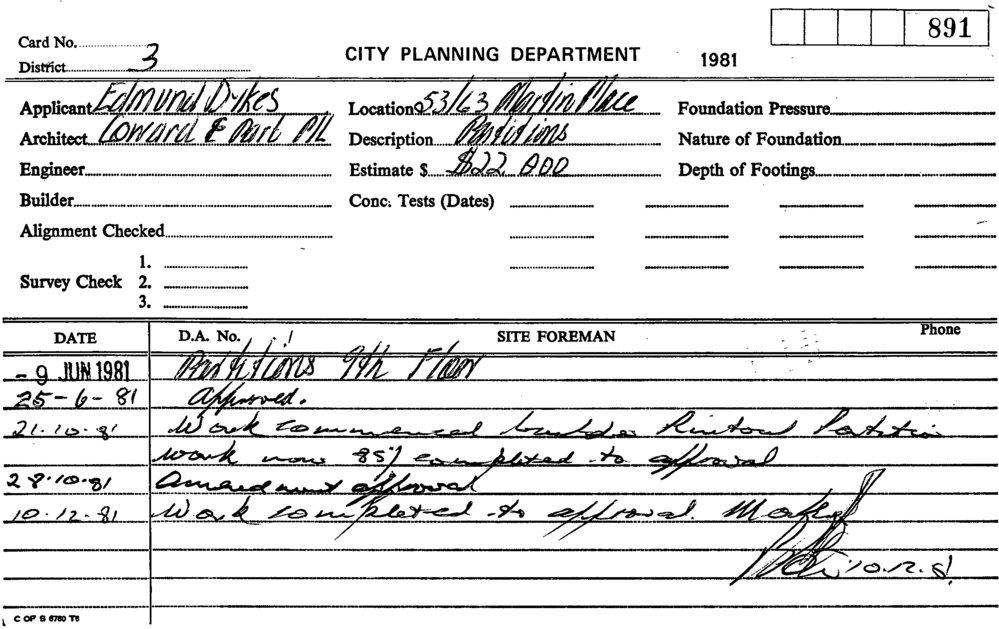 891
Card No.
District 3
CITY PLANNING DEPARTMENT 1981
Applicant Edmund Dykes Location 53/63 Martin Place Foundation Pressure
Architect & Part P/L Description Partitions Nature of Foundation
Engineer Estimate $ $22 000 Depth of Footings
Builder Conc. Tests (Dates)
Alignment Checked
1.
Survey Check 2.
3.
DATE D.A. No. SITE FOREMAN Phone
- 9 JUN 1981 Partitions 9th Floor
25-6-81 Approved.
21.10.81 Work commenced builder Rintoul
work now 85% completed to approval
28.10.81 Amendment approval
10.12.81 Work completed to approval.
10.12.81
C OF S 6780 T6